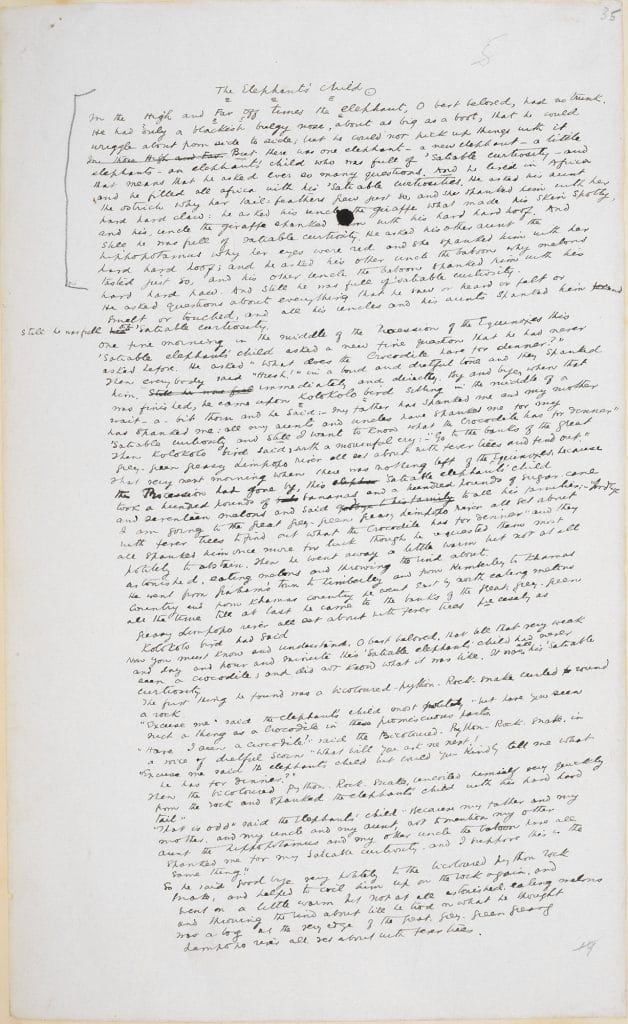 35
The Elephant's Child
In the High and Far Off times the elephant, O best beloved, had no trunk.
He had only a blackish bulgy nose, about as big as a boot, that he could
wriggle about from side to side; but he could not pick up things with it
In those High and Far But there was one elephant - a new elephant - a little
elephant - an elephant's child who was full of 'Satiable curiosity - and
that means that he asked ever so many questions. And he lived in Africa
and he filled all Africa with his 'Satiable curiosities. He asked his aunt
the ostrich why her tail feathers grew just so, and she spanked him with her
hard hard claw: he asked his uncle the giraffe what made his skin spotty,
and his uncle the giraffe spanked him with his hard hard hoof. And
Still he was full of satiable curiosity. He asked his other aunt the
hippopotamus why her eyes were red and she spanked him with her
hard hard hoof; and he asked his other uncle the baboon why melons
tasted just so, and his other uncle the baboon spanked him with his
hard hard paw. And still he was full of satiable curiosity.
He asked questions about everything that he saw or heard or felt or
smelt or touched, and all his uncles and his aunts spanked him
Still he was full of 'Satiable curiosity.
One fine morning in the middle of the Precession of the Equinoxes this
'Satiable elephant's child asked a new fine question that he had never
asked before. He asked "What does the Crocodile have for dinner?"
Then everybody said "Hush!" in a loud and dretful tone and they spanked
him. Still he was full immediately and directly. By and bye, when that
was finished, he came upon Kolokolo bird sitting in the middle of a
wait-a-bit thorn and he said:- My father has spanked me and my mother
has spanked me: all my aunts and uncles have spanked me for my
'Satiable curiosity and still I want to know what the Crocodile has for dinner"
Then Kolokolo bird said, with a mournful cry:- "Go to the banks of the great
grey-green greasy Limpopo river all set about with fever trees and find out."
That very next morning when there was nothing left of the Equinoxes, because
the Procession had gone by, this Satiable elephant's child
took a hundred pounds of bananas and a hundred pounds of sugar cane
and seventeen melons and said to all his families:- "Goodbye
I am going to the great grey-green greasy Limpopo river all set about
with fever trees to find out what the Crocodile has for Dinner" and they
all spanked him once more for luck though he requested them most
politely to abstain. Then he went away a little warm but not at all
astonished, eating melons and throwing the rind about.
He went from Graham's town to Kimberley and from Kimberley to Khamas
Country and from Khamas country he went East by north eating melons
all the time till at last he came to the banks of the great grey-green
greasy Limpopo river all set about with fever trees precisely as
Kolokolo bird had said
Now you must know and understand, O best beloved, that till that very week
and day and hour and minute this 'Satiable elephant's child had never
seen a crocodile; and did not know what it was like. It was all his 'Satiable
curiosity
The first thing he found was a bicoloured-python-Rock-Snake curled round
a rock
"Excuse me" said the elephant's child most politely "but have you seen
such a thing as a Crocodile in these promiscuous parts
"Have I seen a Crocodile?" said the Bicoloured-Python-Rock-Snake, in
a voice of dretful scorn "What will you ask me next!
"Excuse me said the elephants child but could you kindly tell me what
he has for dinner?"
Then the bicoloured Python-Rock-Snake, uncoiled himself very quickly
from the rock and spanked the elephants child with his hard hard
tail"
"That is odd" said the Elephant's child "Because my father and my
mother, and my uncle and my aunt, not to mention my other
aunt the hippopotamus and my other uncle the baboon have all
spanked me for my Satiable curiosity, and I suppose this is the
same thing"
So he said good bye very politely to the bicoloured python rock
snake, and helped to coil him up on the rock again, and
went on a little warm but not at all astonished, eating melons
and throwing the rind about till he trod on what he thought
was a log at the very edge of the great grey-green greasy
Limpopo river all set about with fever trees.